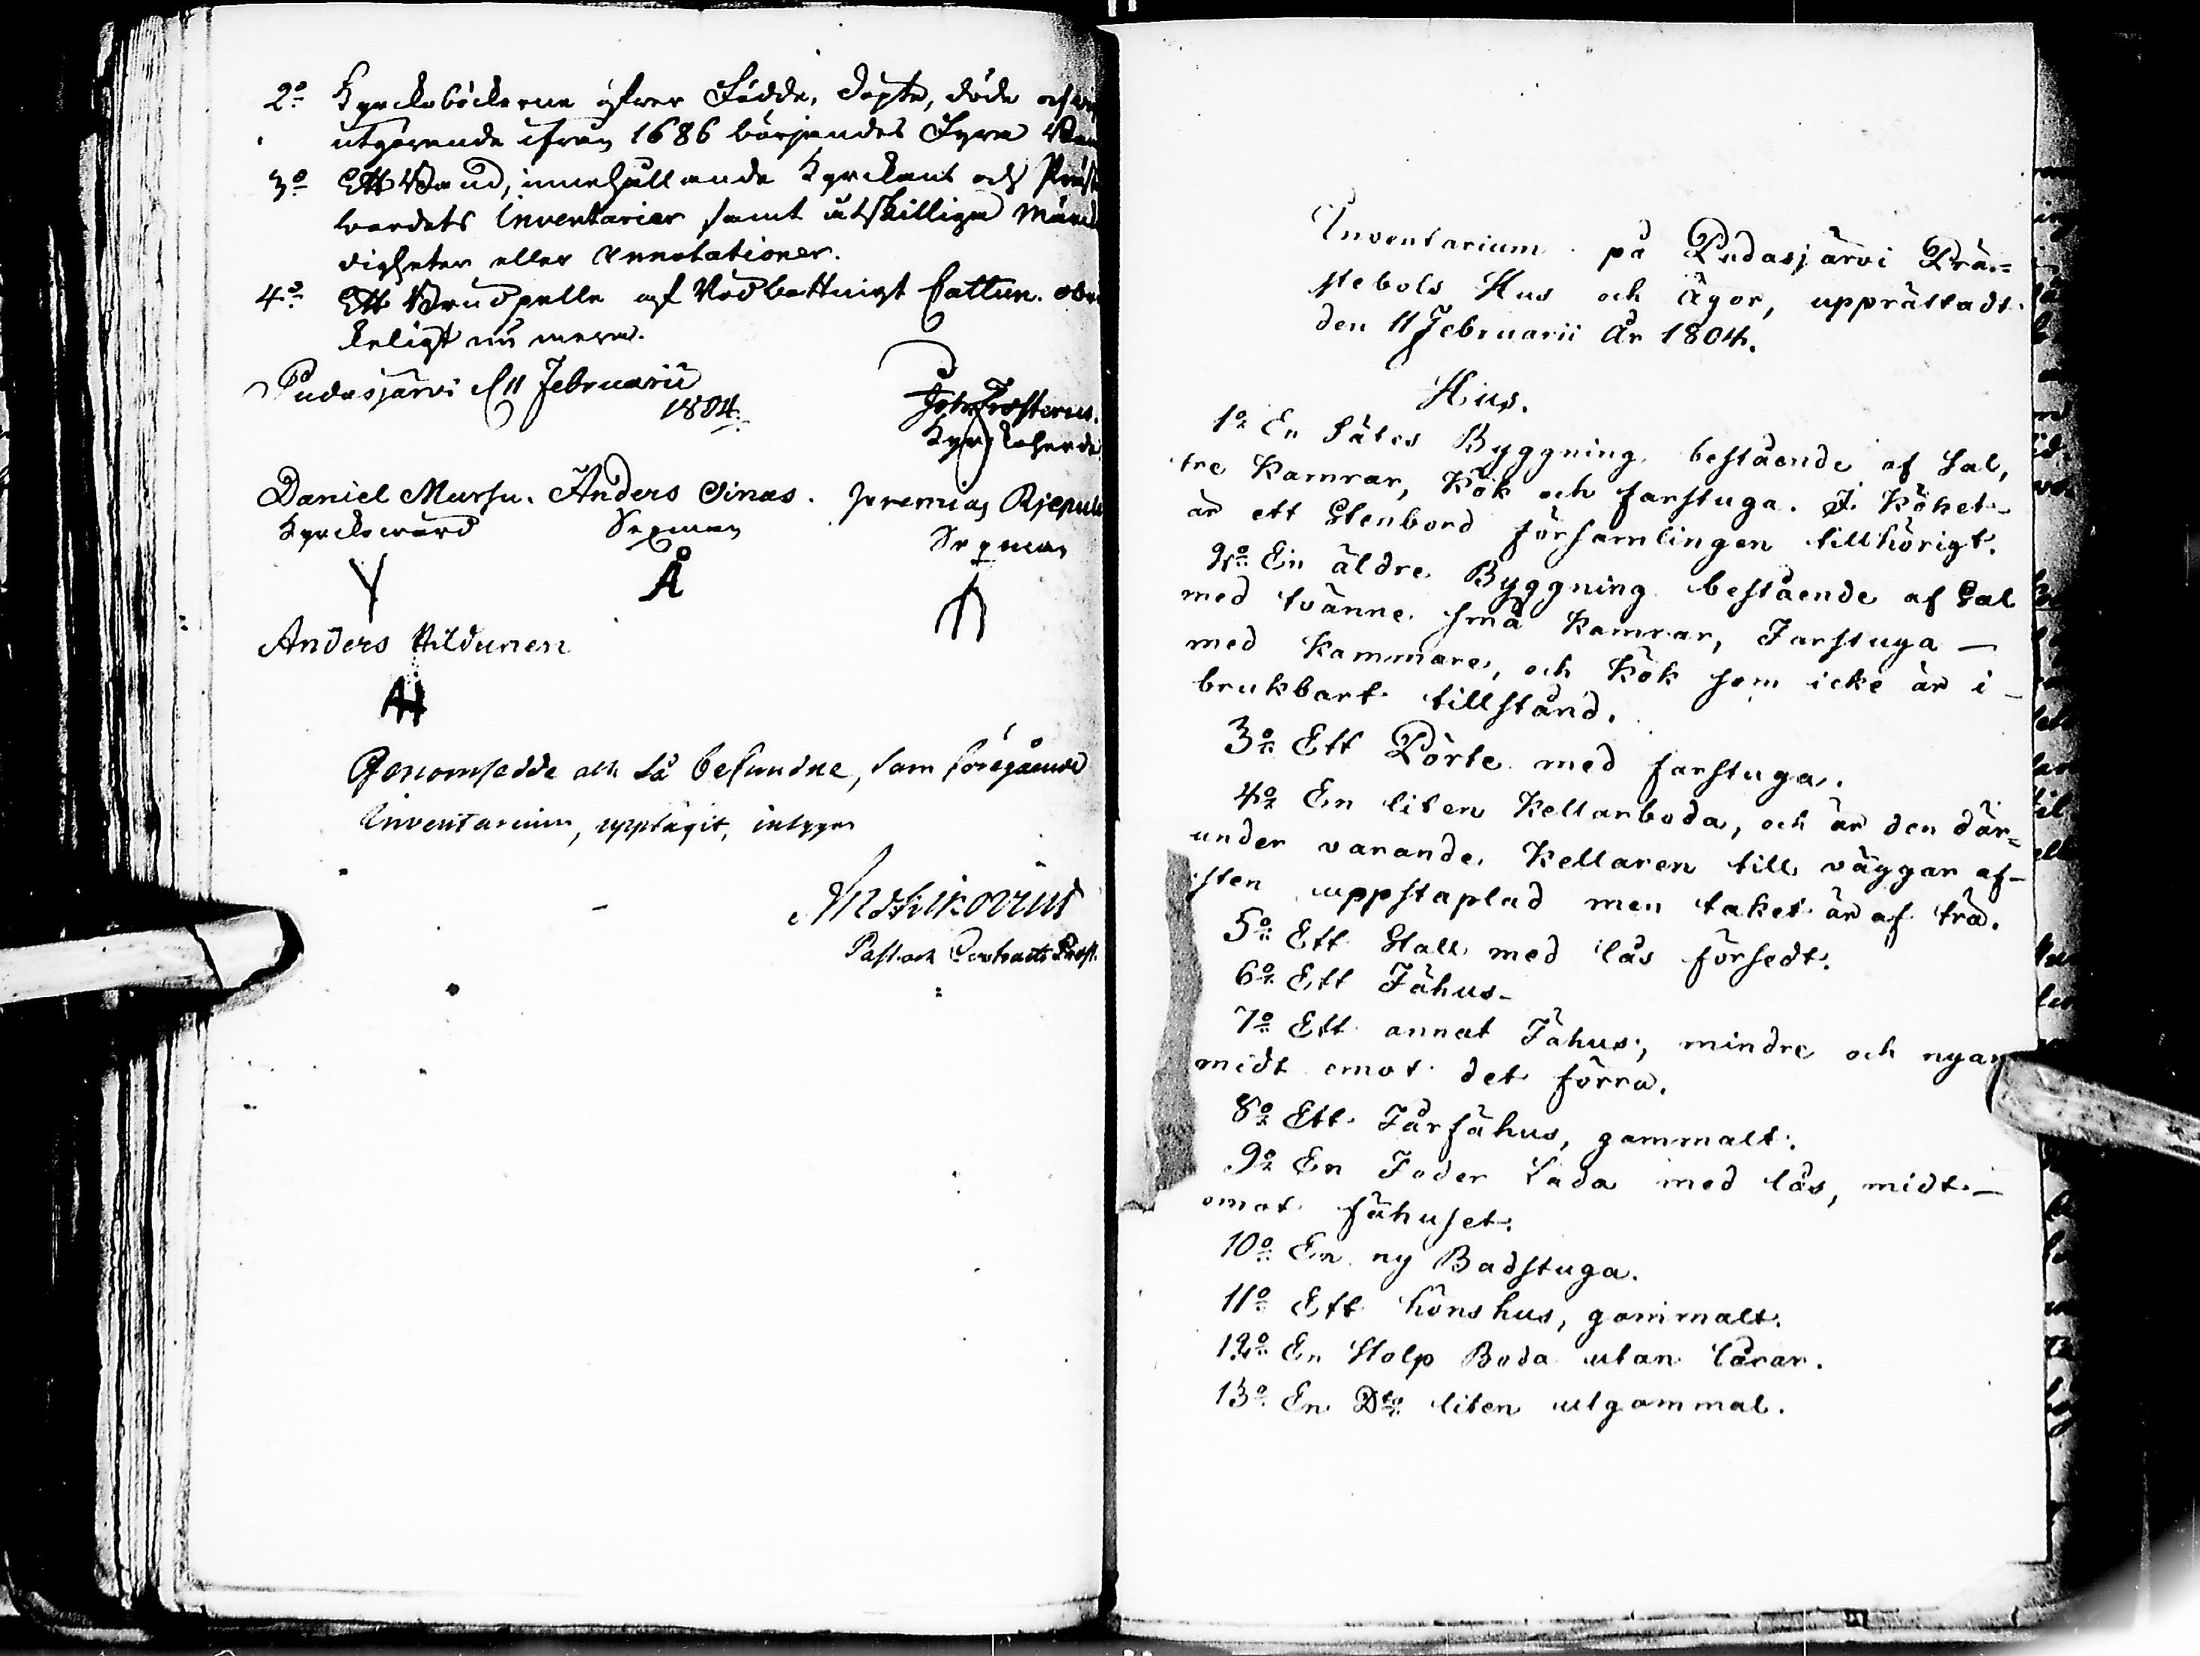 2:o Kyrckoböckerne öfwer Födde, döpte, döde och
utgörende ifrån 1686 börjandes Fyra
3:o Ett Band, innehållande Kyrckans och Präst
bordets Inventarier samt åtskillige Märck
digheter eller Annotationer.
4:o Ett Brudpelle af Rödbottnigt Cattun. obru
keligt nu mera.
Pudasjärvi d 11 Februarii
1804.
Joh: Frosterus.
Kyrckoherde
Daniel Mursu. Anders Sinas. Jeremias
Kyrckowärd Sexman Sexman
Y Å
Anders Hildunen
AH
Genomsedde och så befundne, som föregående
Inventarium, upptagit, intygar
Past. och Contracts Prost.
Inventarium på Pudasjärvi Prä=
stebols Hus och Ägor, upprättadt
den 11 Februarii År 1804.
Hus.
1:o En Sätes Byggning bestående af Sal,
tre Kamrar, Kök och farstuga. I Köket
är ett Stenbord församlingen tillhörigt.
2:o En äldre Byggning bestående af Sal
med tvänne små Kamrar, Farstuga —
med Kammare, och Kök som icke är i —
brukbart tillstånd.
3:o Ett Pörte med farstuga.
4:o En liten Kellarboda, och är den där=
under varande Kellaren till väggar af —
sten uppstaplad men taket är af trä.
5:o Ett Stall med lås försedt.
6:o Ett Fähus —
7:o Ett annat Fähus, mindre och nyar
midt emot det förra.
8:o Ett Fårfähus, gammalt.
9:o En Foder Lada med lås, midt —
emot fähuset.
10:o En ny Badstuga.
11:o Ett hönshus, gammalt.
12:o En Stolp Boda utan lårar.
13:o En D:to liten utgammal.